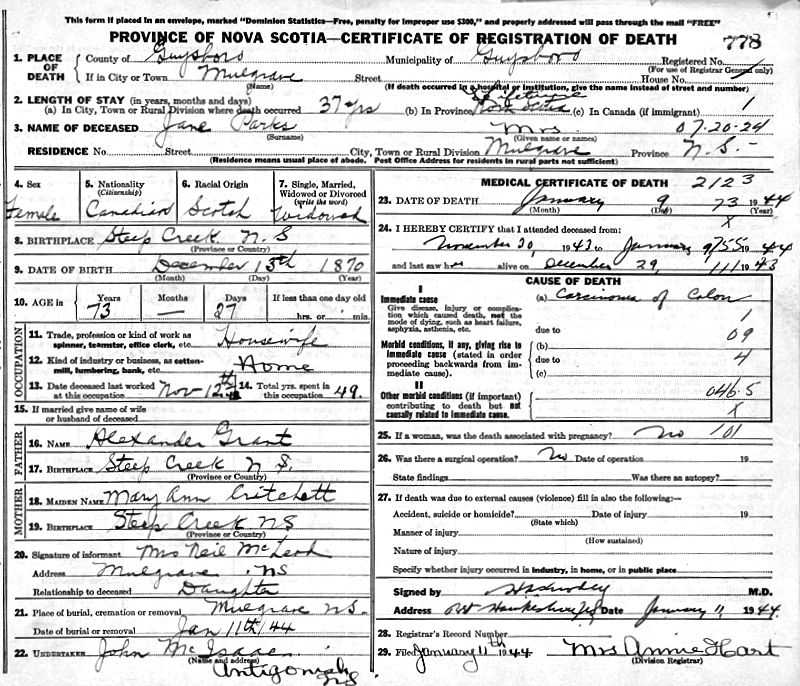 This form if placed in an envelope, marked "Dominion Statistics—Free, penalty for improper use $300," and properly addressed will pass through the mail "FREE"
PROVINCE OF NOVA SCOTIA—CERTIFICATE OF REGISTRATION OF DEATH 778
1. PLACE OF DEATH County of Guysboro Municipality of Guysboro Registered No.
(For use of Registrar General only)
If in City or Town Mulgrave Street House No.
(Name) (If death occurred in a hospital or institution, give the name instead of street and number)
2. LENGTH OF STAY (in years, months and days)
(a) In City, Town or Rural Division where death occurred 37 yrs (b) In Province Nova Scotia (c) In Canada (if immigrant) 1
3. NAME OF DECEASED Jane Parks Mrs. 07.20.24
(Surname) (Given name or names)
RESIDENCE No. Street City, Town or Rural Division Mulgrave Province N.S.-
(Residence means usual place of abode. Post Office Address for residents in rural parts not sufficient)
4. Sex Female
5. Nationality (Citizenship) Canadian
6. Racial Origin Scotch
7. Single, Married, Widowed or Divorced (write the word) Widowed
8. BIRTHPLACE Steep Creek N.S
(Province or Country)
9. DATE OF BIRTH December 13th 1870
(Month) (Day) (Year)
10. AGE in Years 73 Months — Days 27 If less than one day old hrs. or min.
OCCUPATION
11. Trade, profession or kind of work as spinner, teamster, office clerk, etc. Housewife
12. Kind of industry or business, as cotton-mill, lumbering, bank, etc. Home
13. Date deceased last worked at this occupation Nov 12th 14. Total yrs. spent in this occupation 49.
15. If married give name of wife or husband of deceased
FATHER
16. NAME Alexander Grant
17. BIRTHPLACE Steep Creek N S.
(Province or Country)
MOTHER
18. MAIDEN NAME Mary Ann Critchett
19. BIRTHPLACE Steep Creek NS
(Province or Country)
20. Signature of informant Mrs Neil McLeod
Address Mulgrave NS
Relationship to deceased Daughter
21. Place of burial, cremation or removal Mulgrave N.S.
Date of burial or removal Jan 11th/44
22. UNDERTAKER John McIsaac
(Name and address) Antigonish NS
MEDICAL CERTIFICATE OF DEATH 2123
23. DATE OF DEATH January 9 73 1944
(Month) (Day) (Year)
24. I HEREBY CERTIFY that I attended deceased from: X
November 20, 1943 to January 9/55 1944
and last saw her alive on December 29, 111 1943
CAUSE OF DEATH
I
Immediate cause (a) Carcinoma of Colon
Give disease, injury or complication which caused death, not the mode of dying, such as heart failure, asphyxia, asthenia, etc. 1
due to 09
Morbid conditions, if any, giving rise to immediate cause (stated in order proceeding backwards from immediate cause). (b)
due to 4
(c)
II
Other morbid conditions (if important) contributing to death but not causally related to immediate cause. 046.5
X
25. If a woman, was the death associated with pregnancy? No 101
26. Was there a surgical operation? No Date of operation 19
State findings Was there an autopsy?
27. If death was due to external causes (violence) fill in also the following:—
Accident, suicide or homicide? Date of injury 19
(State which)
Manner of injury
(How sustained)
Nature of injury
Specify whether injury occurred in industry, in home, or in public place
Signed by M.D.
Address Pt Hawkesbury NS Date January 11, 1944.
28. Registrar's Record Number
29. Filed January 11th 1944 Mrs Annie Hart
(Division Registrar)